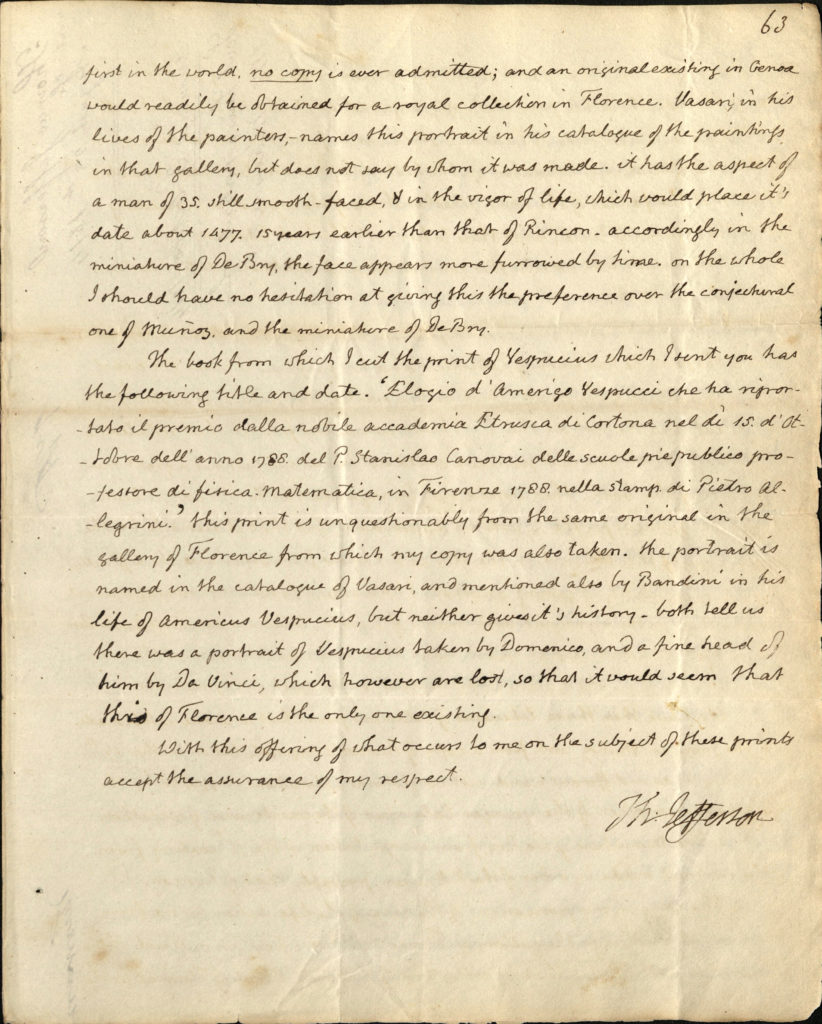 63
first in the world, no copy is ever admitted; and an original existing in Genoa
would readily be obtained for a royal collection in Florence. Vasari, in his
lives of the painters,- names this portrait in his catalogue of the paintings
in that gallery, but does not say by whom it was made. it has the aspect of
a man of 35. still smooth-faced, & in the vigor of life, which would place it's
date about 1477. 15 years earlier than that of Rincon. accordingly in the
miniature of De Bry, the face appears more furrowed by time. on the whole
I should have no hesitation at giving this the preference over the conjectural
one of Muñoz, and the miniature of De Bry.
The book from which I cut the print of Vespucius which I sent you has
the following title and date. 'Elogio d'Amerigo Vespucci che ha ripor-
-tato il premio dalla nobile accademia Etrusca di Cortona nel dì 15. d'Ot-
-tobre dell'anno 1788. del P. Stanislao Canovai delle scuole pie publico pro-
-fessore di fisica. Matematica, in Firenze 1788. nella stamp. di Pietro Al-
-legrini.' this print is unquestionably from the same original in the
gallery of Florence from which my copy was also taken. the portrait is
named in the catalogue of Vasari, and mentioned also by Bandini in his
life of Americus Vespucius, but neither gives it's history - both tell us
there was a portrait of Vespucius taken by Domenico, and a fine head of
him by Da Vinci, which however are lost, so that it would seem that
this of Florence is the only one existing.
With this offering of what occurs to me on the subject of these prints
accept the assurance of my respect.
Th: Jefferson